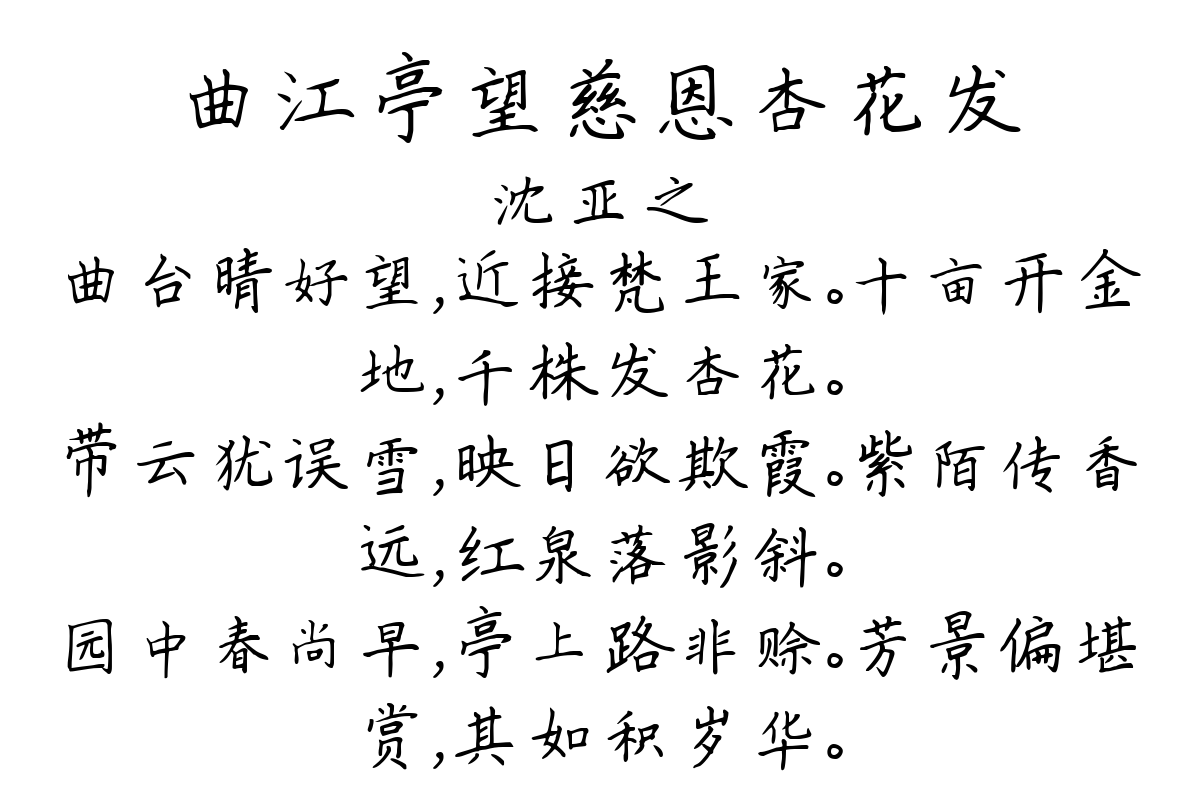 曲江亭望慈恩杏花发
沈亚之
曲台晴好望,近接梵王家。十亩开金
地,千株发杏花。
带云犹误雪,映日欲欺霞。紫陌传香
远,红泉落影斜。
园中春尚早,亭上路非赊。芳景偏堪
赏,其如积岁华。